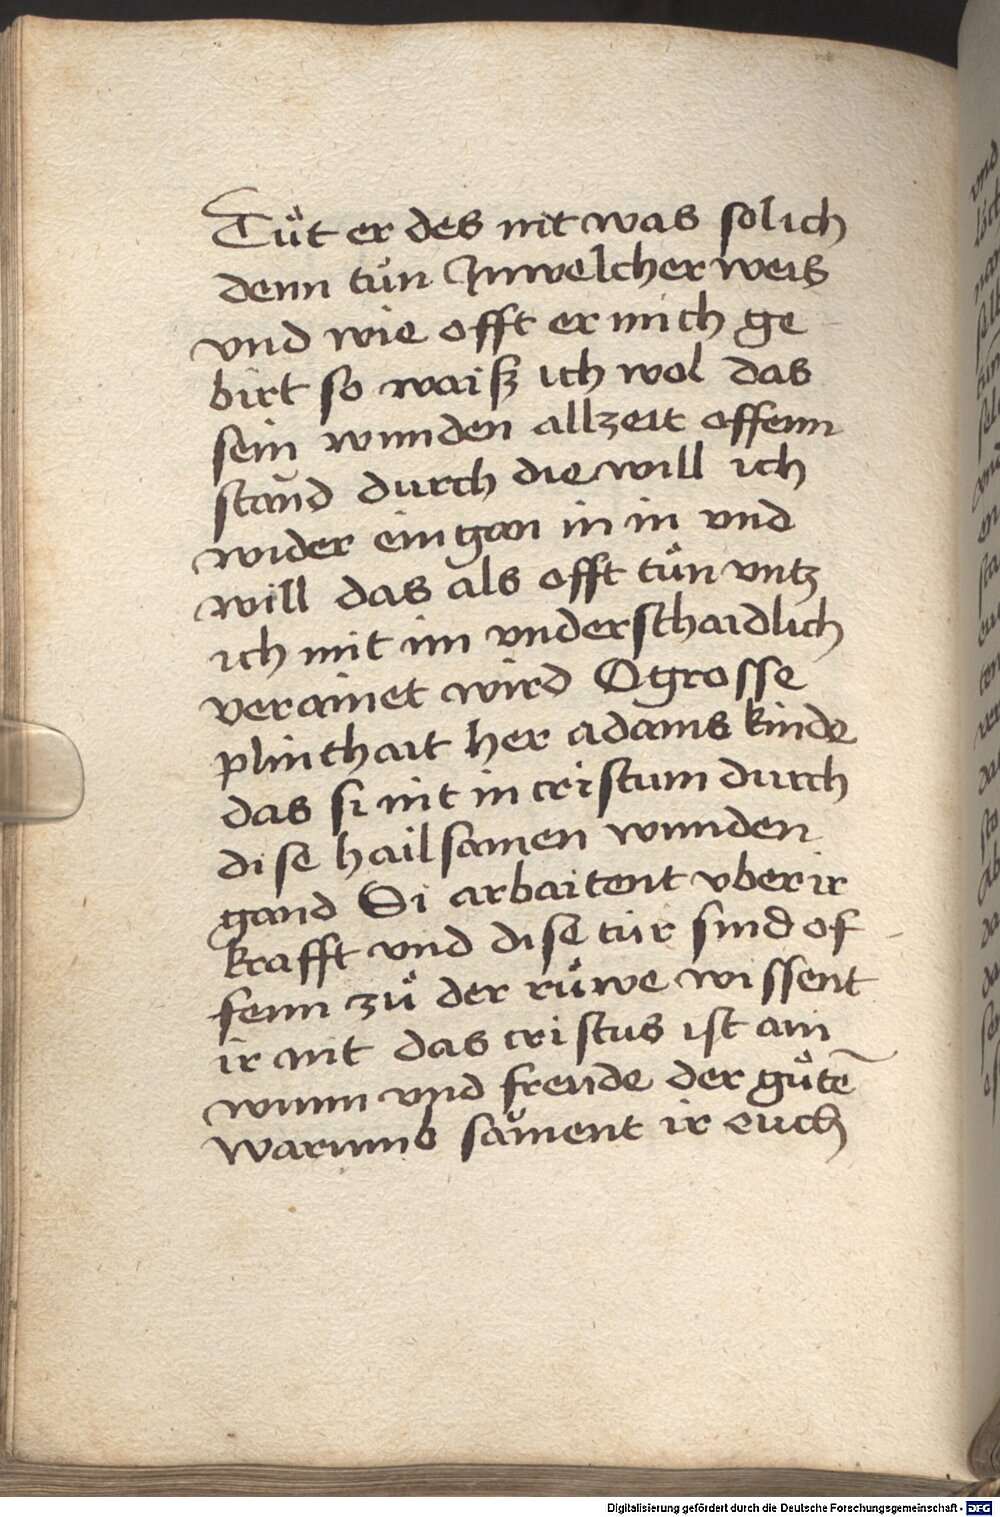 Tuͦt er des nit was sol ich
denn tuͦn Jn welcher weis
vnd wie offt er mich ge
birt so waiß ich wol das
sein wunden allzeit offenn
stand durch die will ich
wider ein gan in in vnd
will das als offt tuͦn vntz
ich mit im vnderschaidlich
verainet wird O grosse
plinthait her adams kinde
das si nit in cristum durch
dise hailsamen wunden
gand Si arbaitent vber ir
krafft vnd dise tür sind of
fenn zuͦ der ruͦwe wissent
ir nit das cristus ist ain
wunn vnd freude der guͦtē
warumb sament ir euch
Digitalisierung gefördert durch die Deutsche Forschungsgemeinschaft - DFG